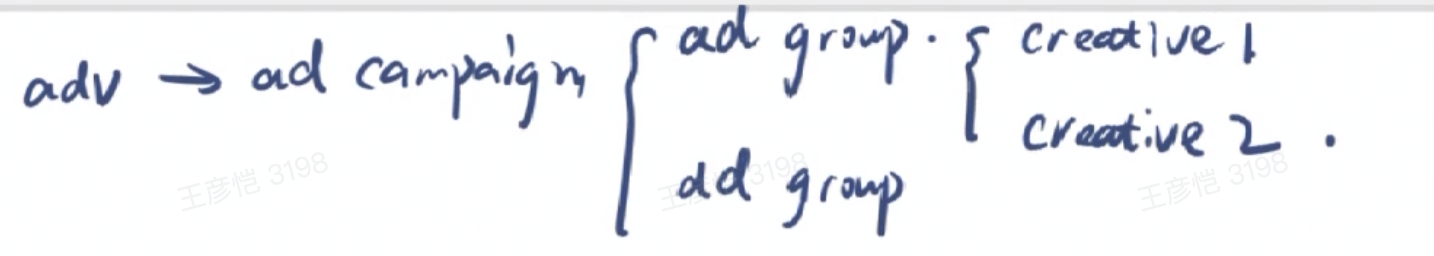 adv → ad campaign { ad group. { creative 1
creative 2.
ad group
王彦恺 3198
王彦恺 3198
王彦恺 3198